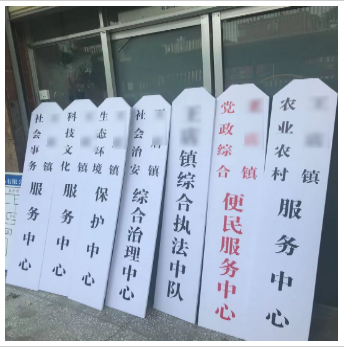 镇
社会事务
服务中心
镇
科技文化
服务中心
镇
生态环境
保护中心
镇
社会治安
综合治理中心
镇综合执法中队
镇
党政综合
便民服务中心
镇
农业农村
服务中心